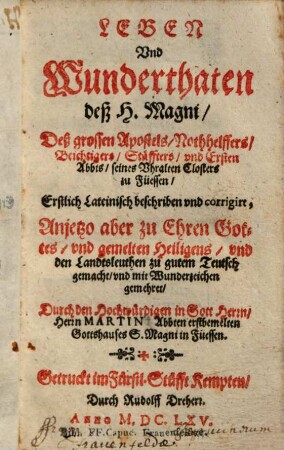 LEBEN
Vnd
Wunderthaten
deß H. Magni/
Deß grossen Apostels/Nothhelffers/
Beichtigers/Stüffters/vnd Ersten
Abbts/seines Vhralten Closters
zu Füessen/
Erstlich Lateinisch beschriben vnd corrigirt,
Anjetzo aber zu Ehren Got-
tes/vnd gemelten Heiligens/vnd
den Landtsleuthen zu gutem Teutsch
gemacht/vnd mit Wunderzeichen
gemehret/
Durch den Hochwürdigen in Gott Herrn/
Herrn MARTIN Abbten erstbemelten
Gottshauses S. Magni in Füessen.
Getruckt im Fürstl. Stüfft Kempten/
Durch Rudolff Dreher.
ANNO M. DC. LXV.
Bibl. FF. Capuc. Frauenfeldae.